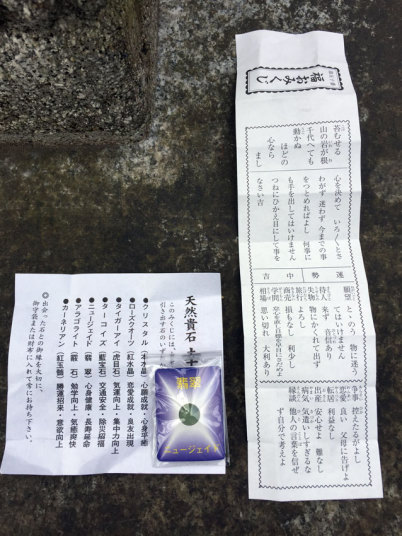 福おみくじ
苔むせる
山の岩が根
千代へても
動かぬ
ほどの
心なら
まし
心を決めて いろ〱とさ
わがず 迷わず 今までの事
をつとめればよし 何事に
も手を出してはいけません
つねにひかえ目にして事を
なさい 吉
運勢 中吉
願望 とゝのう 物に迷う
てはいけません
待人 来ず 音信あり
失物 物にかくれて出ず
旅行 よし
商売 損もなし 利少し
学問
相場 思い切れ 大利あり
争事 控えたるがよし
恋愛 良い 父母に告げよ
転居 利益なし
出産 安心せよ 難なし
病気 気遣いしすぎるな
縁談 他人の言葉を信ぜ
ず自分で考えよ
天然貴石
このみくじには
引き出す石のいず
●クリスタル【本水晶】心願成就・心身平癒
●ローズクオーツ【紅水晶】恋愛成就・良友出現
●タイガーアイ【虎目石】気運向上・集中力向上
●ターコイズ【藍宝石】交通安全・除災招福
●ニュージェイド【翡翠】心身健康・長寿延命
●アラゴライト【霰石】勉学向上・気癒爽快
●カーネリアン【紅玉髄】勝運招来・意欲向上
◎出会った石との御縁を大切に、
御守袋または財布に入れて常にお持ち下さい。
翡翠
ニュージェイド